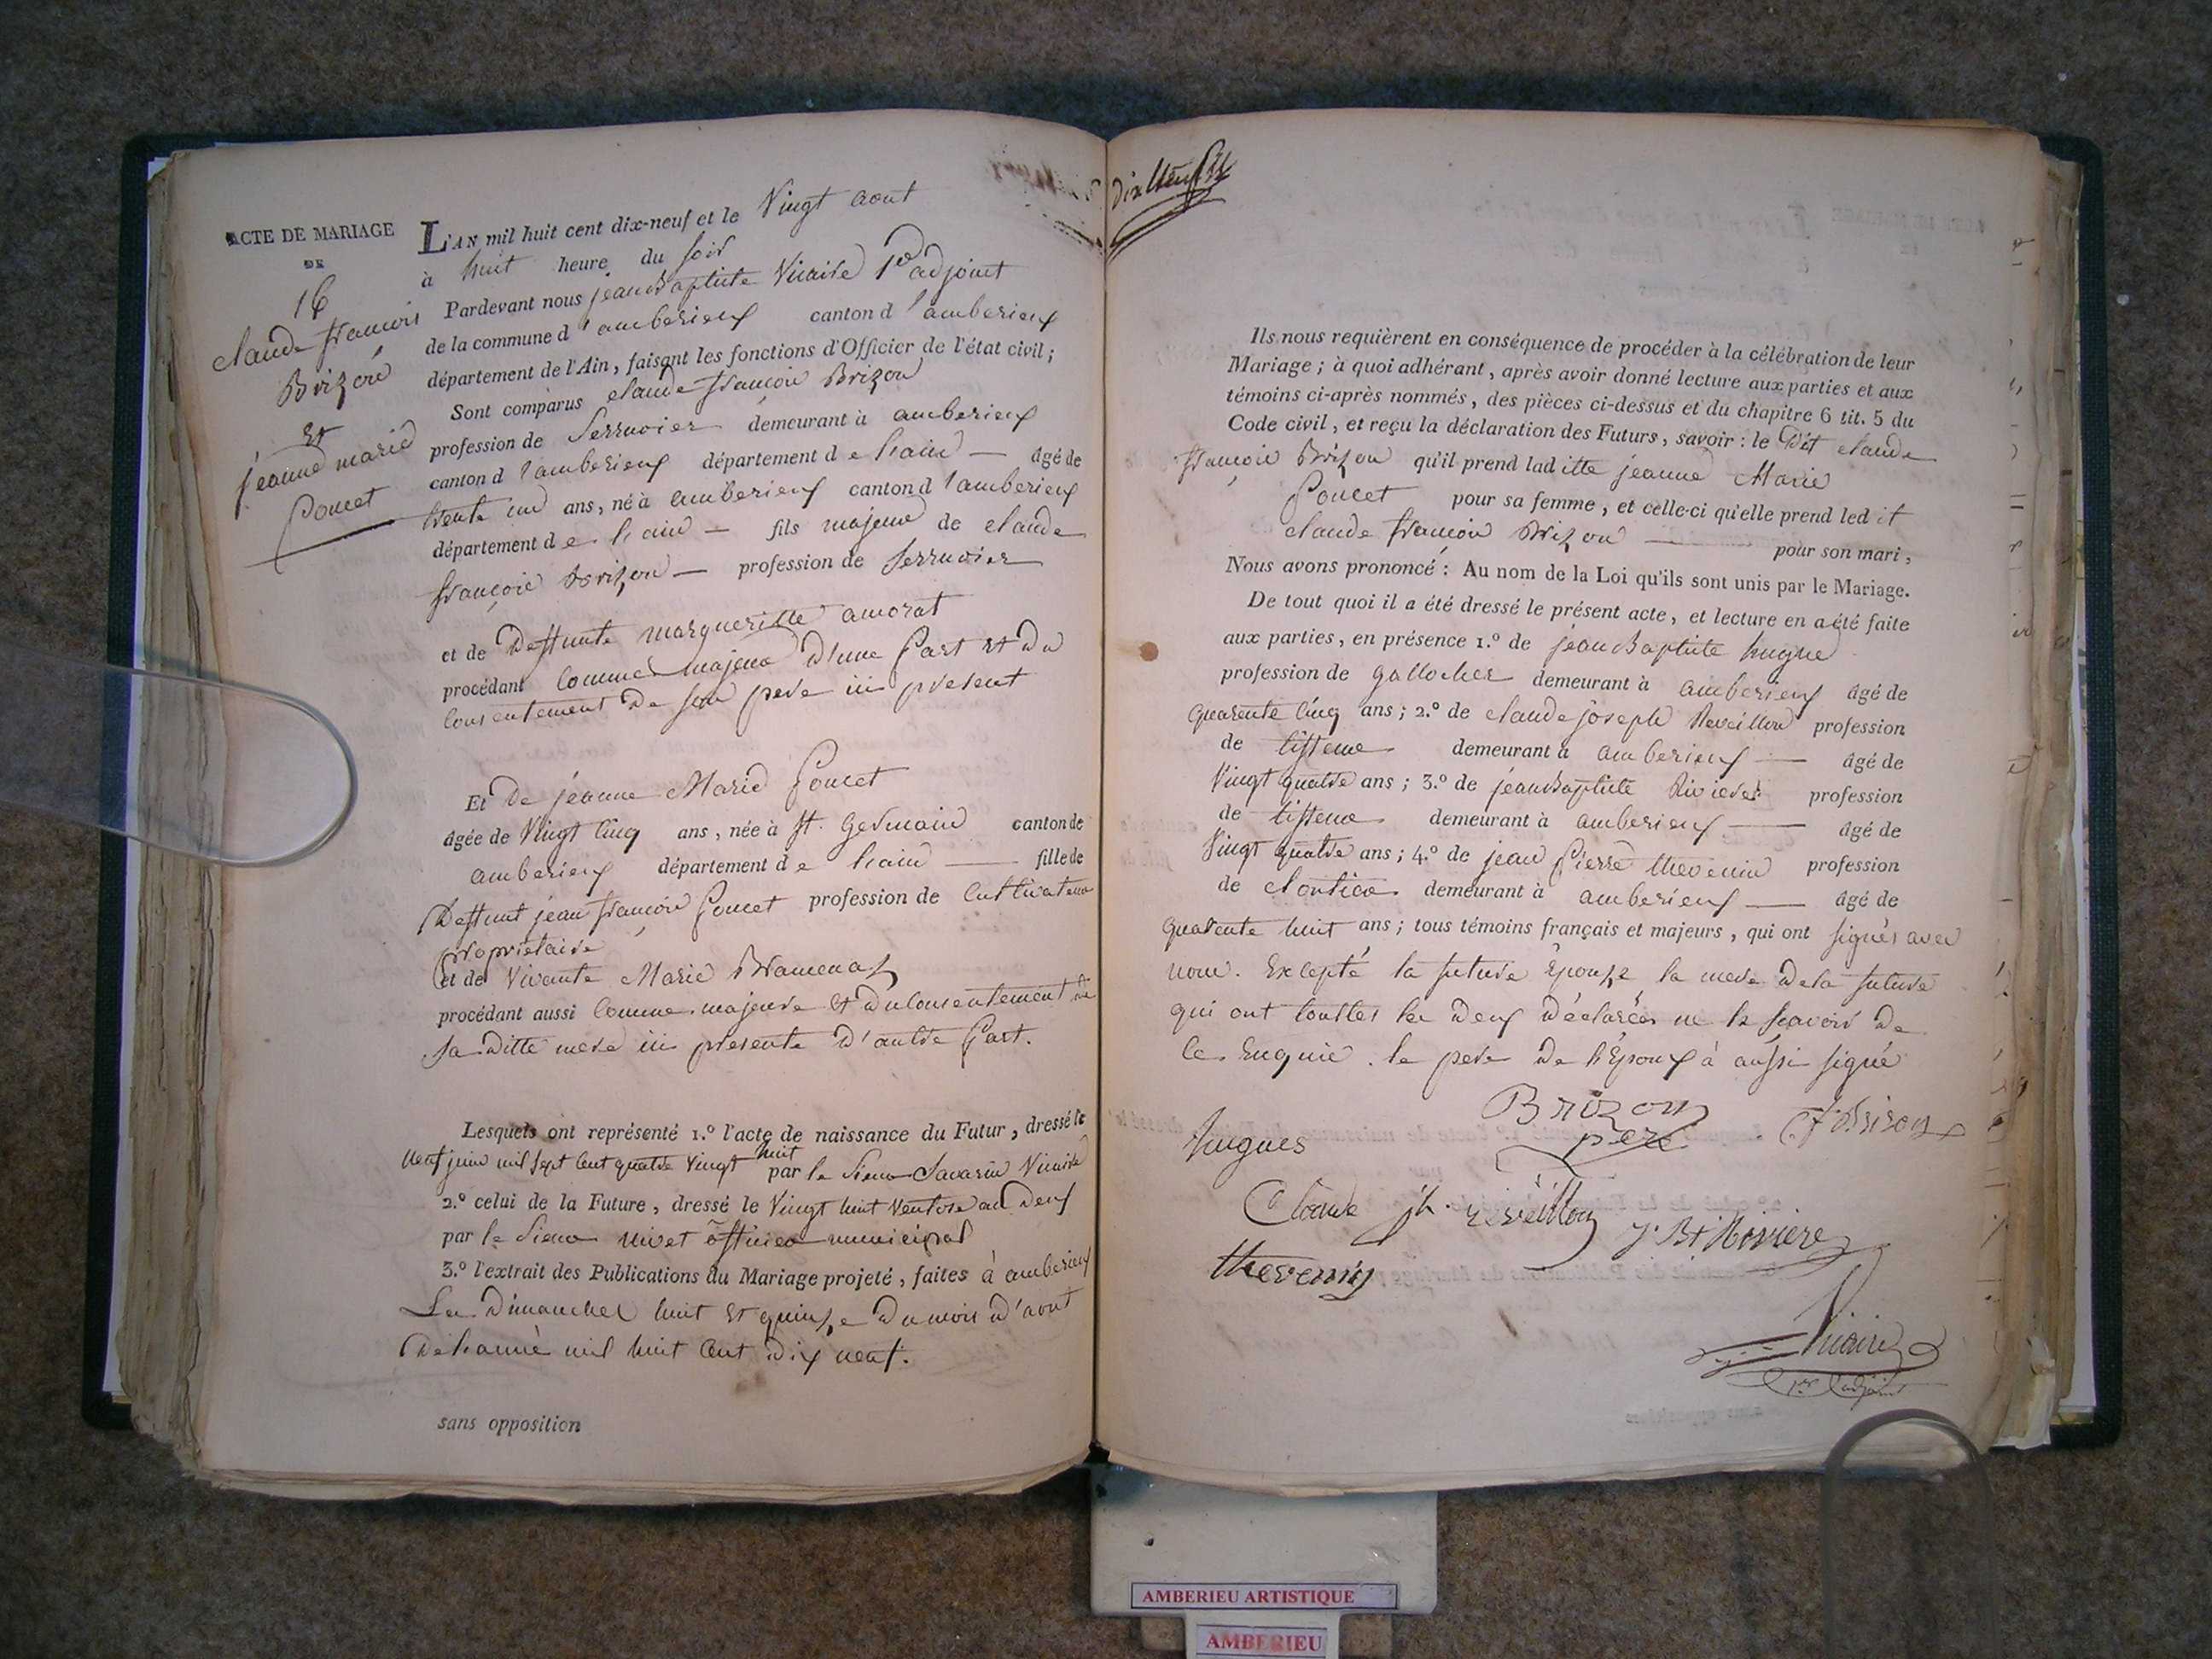 ACTE DE MARIAGE
DE
16
claude françois
Brizon
Et
jeanne marie
Poncet
L'AN mil huit cent dix-neuf et le Vingt aout
à huit heure du soir
Pardevant nous jean Baptiste Vicaire 1er adjoint
de la commune d'amberieux canton d'amberieux
département de l'Ain, faisant les fonctions d'Officier de l'état civil;
Sont comparus claude françois Brizon
profession de Serrurier demeurant à amberieux
canton d'amberieux département de Lain — âgé de
trente un ans, né à amberieux canton d'amberieux
département de Lain — fils majeur de claude
françois Brizon — profession de Serrurier
et de Deffunte margueritte amorat
procédant Comme majeur d'une Part et du
Consentement de son pere ici présent
Et De jeanne Marie Poncet
âgée de Vingt Cinq ans, née à St. Germain canton de
amberieux département de Lain — fille de
Deffunt jean françois Poncet profession de Cultivateur
propriétaire
et de Vivante Marie Bramenas
procédant aussi Comme majeure Et du Consentement de
sa ditte mere ici presente d'autre Part.
Lesquels ont représenté 1.º l'acte de naissance du Futur, dressé le
neuf juin mil sept Cent quatre Vingt huit par le Sieur Savarin Vicaire
2.º celui de la Future, dressé le Vingt huit Ventose an Deux
par le Sieur nivet officier municipal
3.º l'extrait des Publications du Mariage projeté, faites à amberieux
Les Dimanches huit Et quinze du mois d'aout
De Lannée mil huit Cent dix neuf.
sans opposition
Dix Neuf
Ils nous requièrent en conséquence de procéder à la célébration de leur
Mariage; à quoi adhérant, après avoir donné lecture aux parties et aux
témoins ci-après nommés, des pièces ci-dessus et du chapitre 6 tit. 5 du
Code civil, et reçu la déclaration des Futurs, savoir: le dit claude
françois Brizon qu'il prend laditte jeanne Marie
Poncet pour sa femme, et celle-ci qu'elle prend ledit
claude françois Brizon — pour son mari,
Nous avons prononcé: Au nom de la Loi qu'ils sont unis par le Mariage.
De tout quoi il a été dressé le présent acte, et lecture en a été faite
aux parties, en présence 1.º de jean Baptiste hugue
profession de gallocher demeurant à amberieux âgé de
quarente Cinq ans; 2.º de claude joseph Reveillon profession
de tisseur demeurant à amberieux — âgé de
Vingt quatre ans; 3.º de jean Baptiste Riviere profession
de tisseur demeurant à amberieux — âgé de
Vingt quatre ans; 4.º de jean Pierre thevenin profession
de cloutier demeurant à amberieux — âgé de
quarente huit ans; tous témoins français et majeurs, qui ont signés avec
nous. Excepté la future Epouze, la mere de la future
qui ont touttes les deux déclarées ne le scavoir de
Ce Enquis. le pere de L'Epoux à aussi signé
Brizon
pere
C f Brison
hugues
Claude jh. reveillon
J. Bt Riviere
thevenin
Vicaire
1er adjoint
AMBERIEU ARTISTIQUE
AMBERIEU